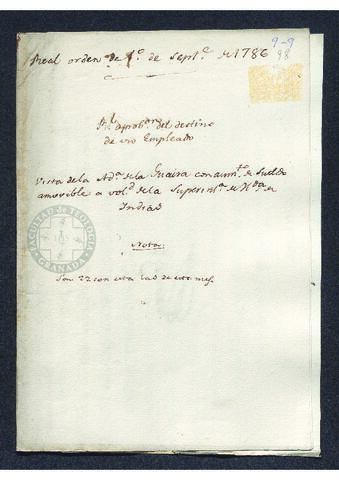 Real orden de 1º de Septe de 1786
9-9
98
Rl aprobon del destino
de un Empleado
Vista de la Adª de la Guaira con aumto de sueldo
amovible a volª de la Superintª de Rª de
Indias
FACULTAD DE TEOLOGIA
GRANADA
Nota
Son 22 con esta las de este mes.